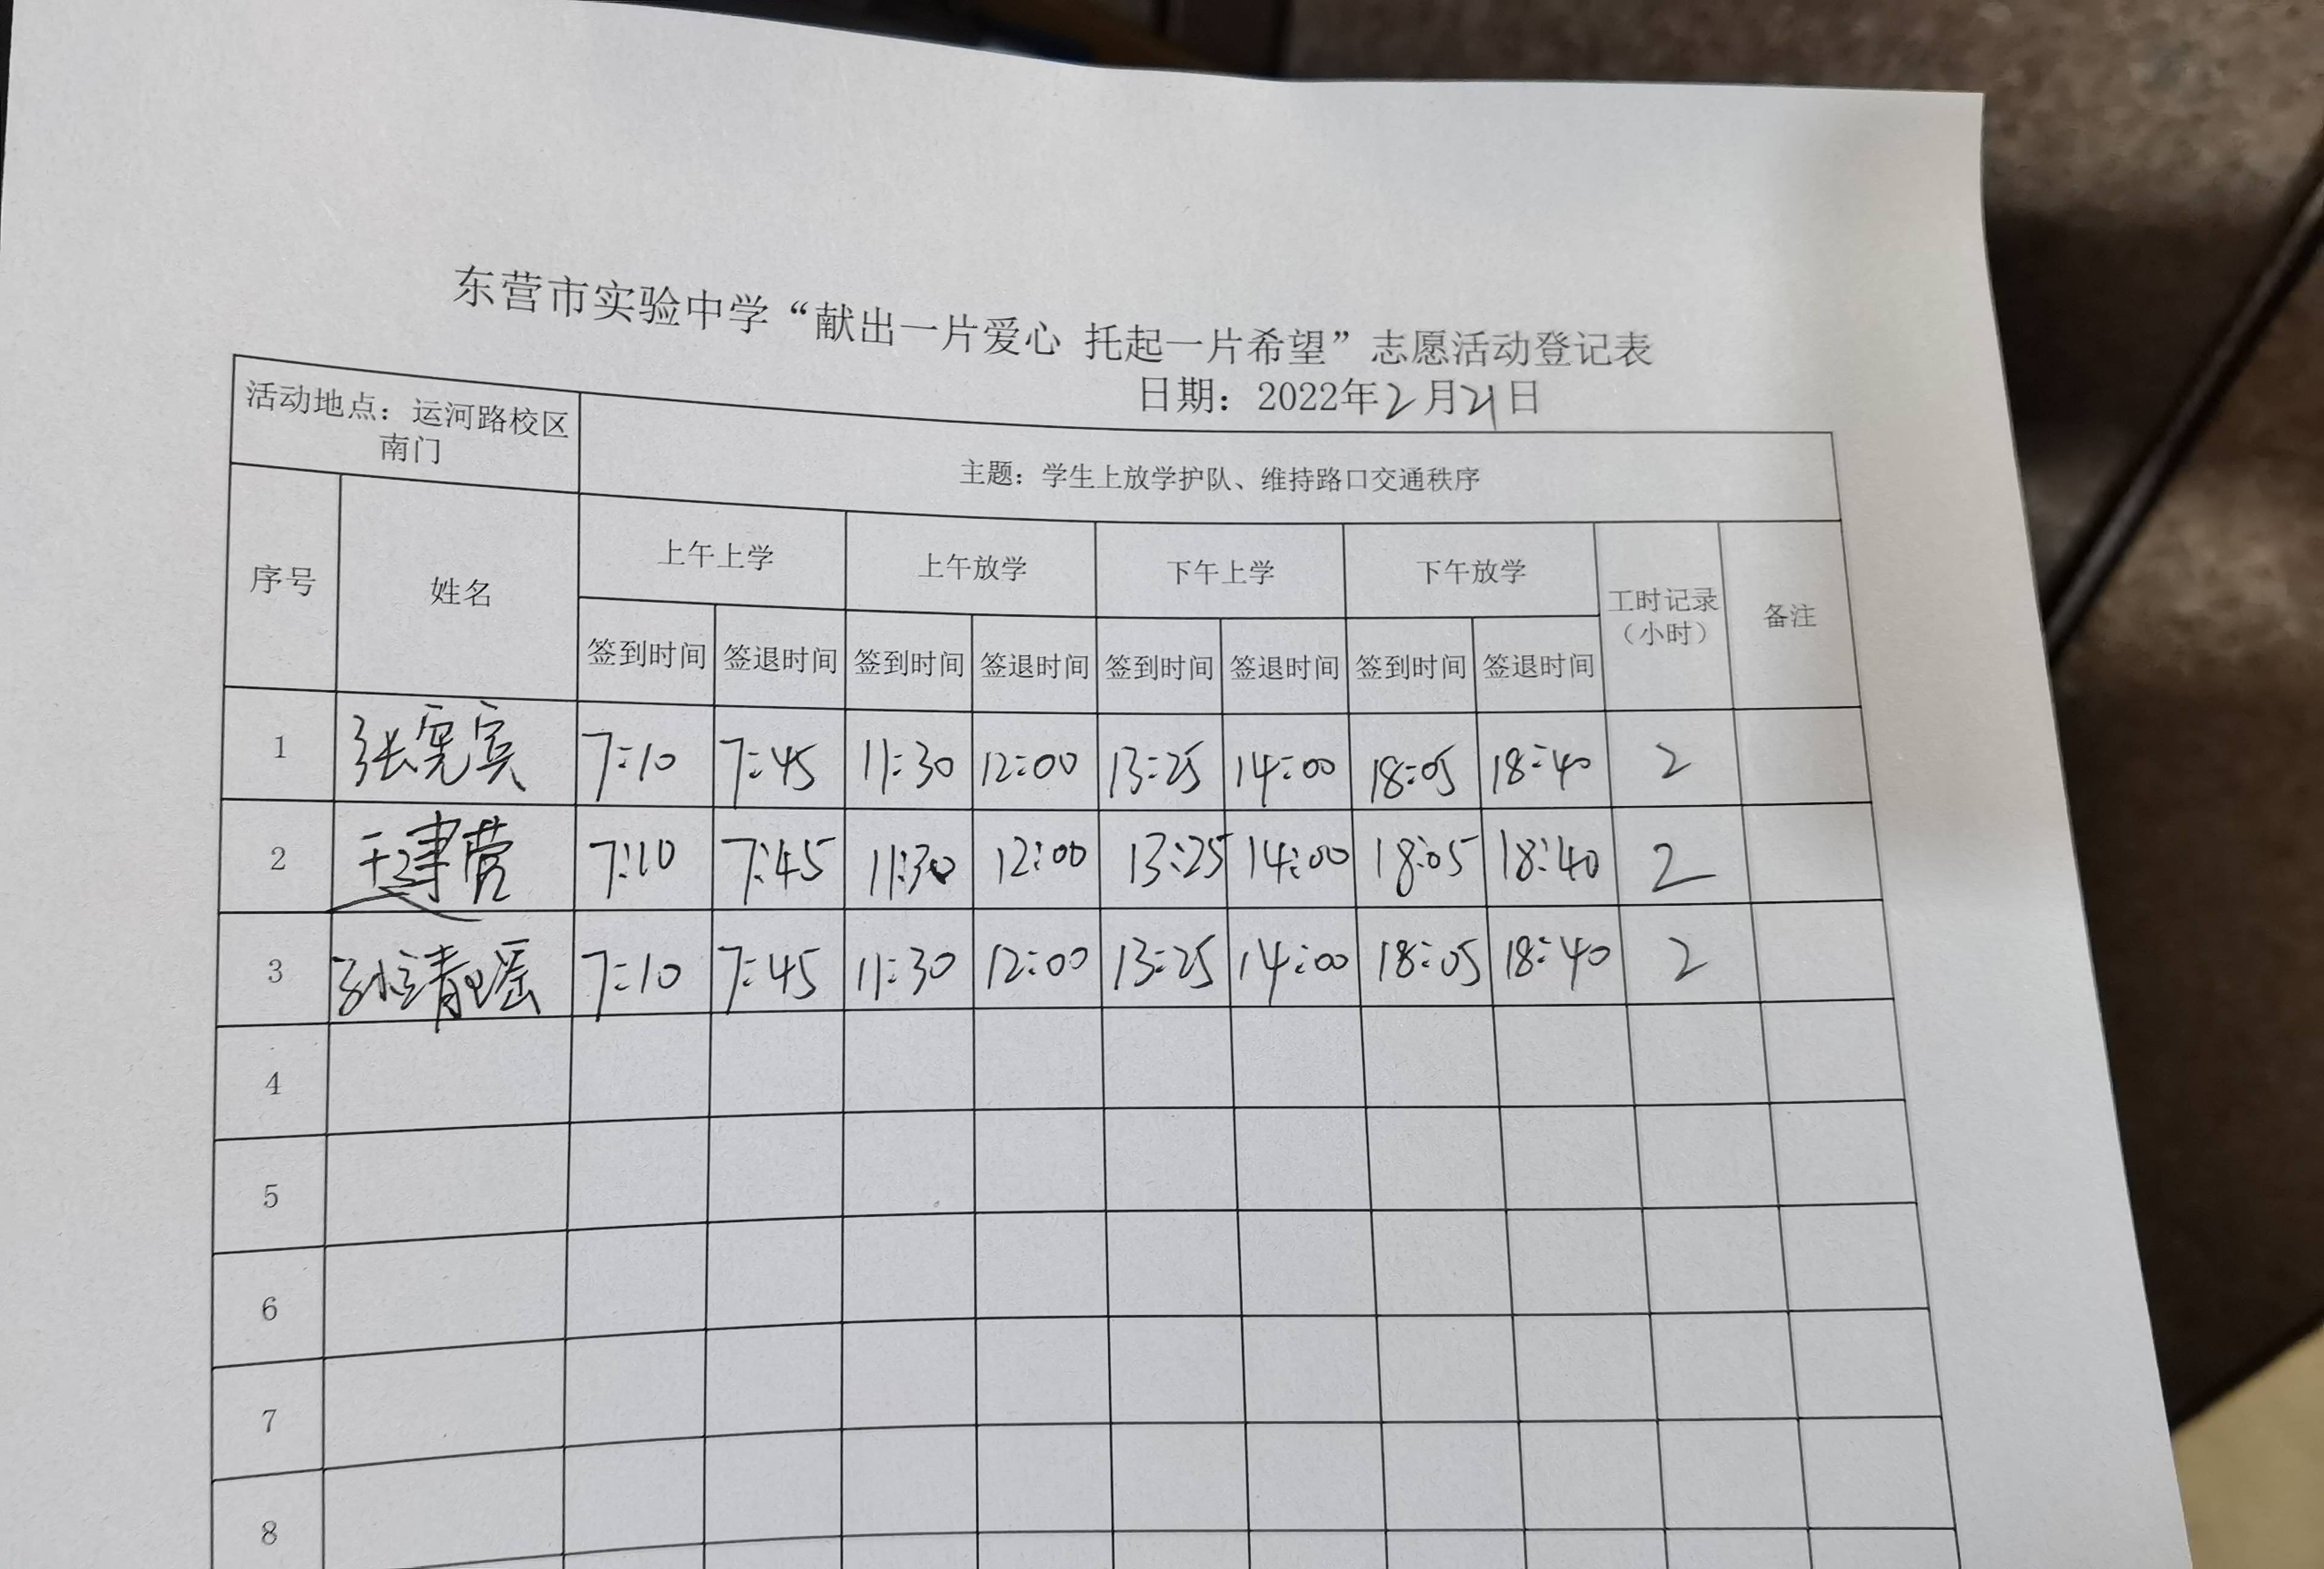 东营市实验中学“献出一片爱心 托起一片希望”志愿活动登记表
日期：2022年2月21日
活动地点：运河路校区
南门
主题：学生上放学护队、维持路口交通秩序
序号 姓名 上午上学 上午放学 下午上学 下午放学 工时记录（小时） 备注
签到时间 签退时间 签到时间 签退时间 签到时间 签退时间 签到时间 签退时间
1 张宪宾 7:10 7:45 11:30 12:00 13:25 14:00 18:05 18:40 2
2 王建营 7:10 7:45 11:30 12:00 13:25 14:00 18:05 18:40 2
3 孙靖瑶 7:10 7:45 11:30 12:00 13:25 14:00 18:05 18:40 2
4
5
6
7
8